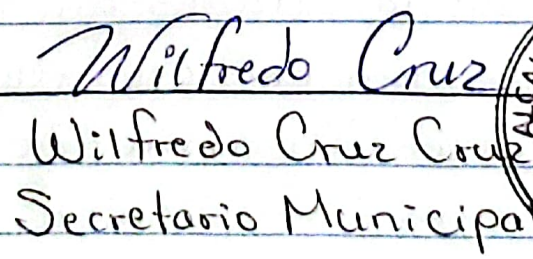 Wilfredo Cruz
Wilfredo Cruz Cruz
Secretario Municipa